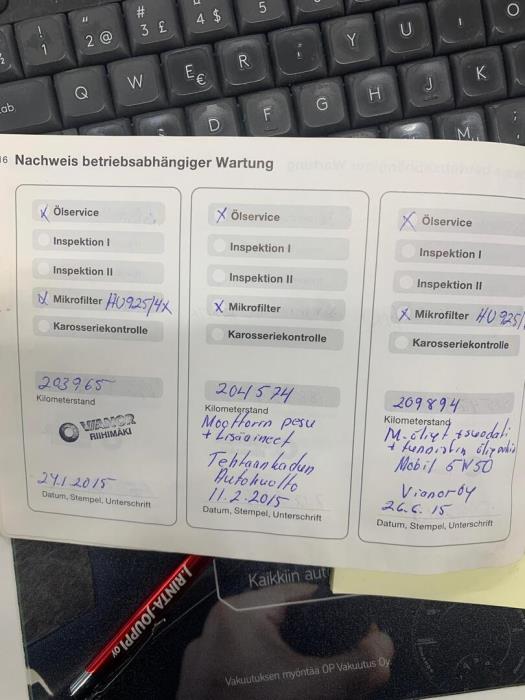 !
1
"
2 @
#
3 £
4 $
5
Q
W
E €
R
Y
U
I
O
D
F
G
H
J
K
M
16 Nachweis betriebsabhängiger Wartung
X Ölservice
Inspektion I
Inspektion II
X Mikrofilter HU925/4X
Karosseriekontrolle
203965
Kilometerstand
VIANOR
RIIHIMÄKI
24.1.2015
Datum, Stempel, Unterschrift
X Ölservice
Inspektion I
Inspektion II
X Mikrofilter
Karosseriekontrolle
204574
Kilometerstand
Moottorin pesu
+ Lisäaineet
Tehtaankadun
Autohuolto
11.2.2015
Datum, Stempel, Unterschrift
X Ölservice
Inspektion I
Inspektion II
X Mikrofilter HU925/
Karosseriekontrolle
209894
Kilometerstand
M.öljyt + suodatin
+
Mobil 5W50
Vianor Oy
26.6.15
Datum, Stempel, Unterschrift
J.RINTA-JOUPPI OY
Kaikkiin aut
Vakuutuksen myöntää OP Vakuutus Oy